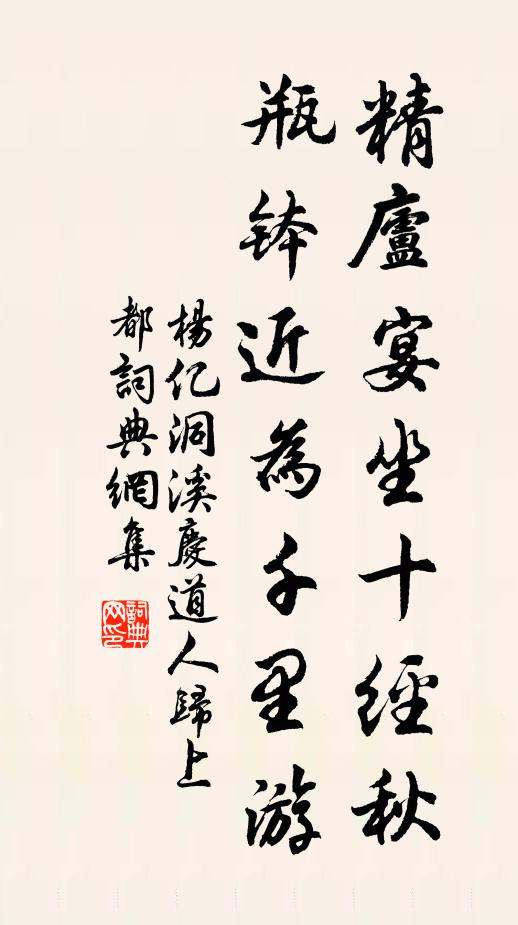 精廬宴坐十經秋
瓶鉢近為千里游
楊億洞溪慶道人歸上
都詞典網集
詞典网印